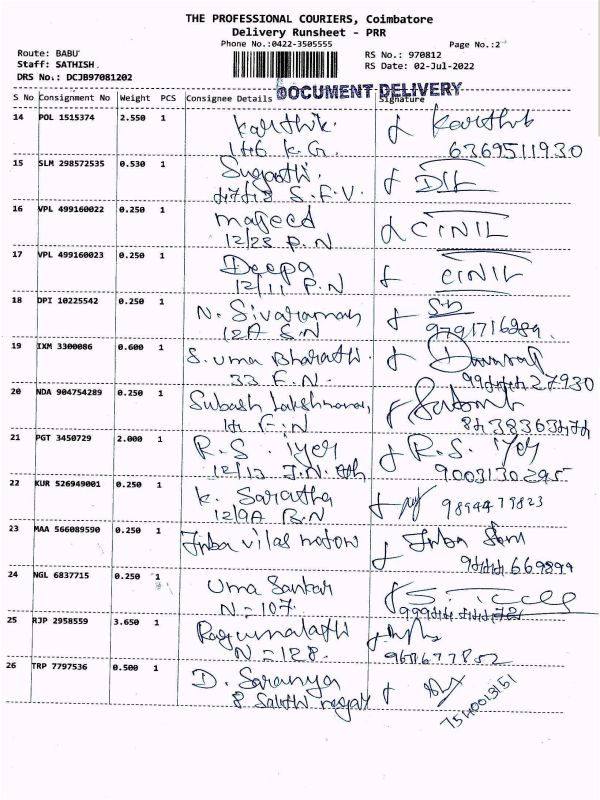 THE PROFESSIONAL COURIERS, Coimbatore
Delivery Runsheet - PRR
Phone No.:0422-3505555 Page No.:2
Route: BABU RS No.: 970812
Staff: SATHISH RS Date: 02-Jul-2022
DRS No.: DCJB97081202
DOCUMENT DELIVERY
S No Consignment No Weight PCS Consignee Details Signature
14 POL 1515374 2.550 1 Karthik. Karthik
146 K.G. 6369511930
15 SLM 298572535 0.530 1 Sugathi.
S.F.V.
16 VPL 499160022 0.250 1 majeed CINIL
12/23 P.N
17 VPL 499160023 0.250 1 Deepa CINIL
12/11 P.N
18 DPI 10225542 0.250 1 N. Sivaraman
12A S.N 9791716989.
19 IXM 3300086 0.600 1 S. Uma Bharathi.
33 F.N.
20 NDA 904754289 0.250 1 Subash Lakshmanan,
F.N
21 PGT 3450729 2.000 1 R.S. iyer R.S. iyer
12/13 9003130295
22 KUR 526949001 0.250 1 K. Saratha
12/9A B.N 9894479823
23 MAA 566089590 0.250 1 Inba vilas motors Inba
24 NGL 6837715 0.250 1 Uma Sankar
N-107.
25 RJP 2958559 3.650 1 Ragumalathi
N-128.
26 TRP 7797536 0.500 1 D. Saranya
8 Sakthi nagar 7540013151